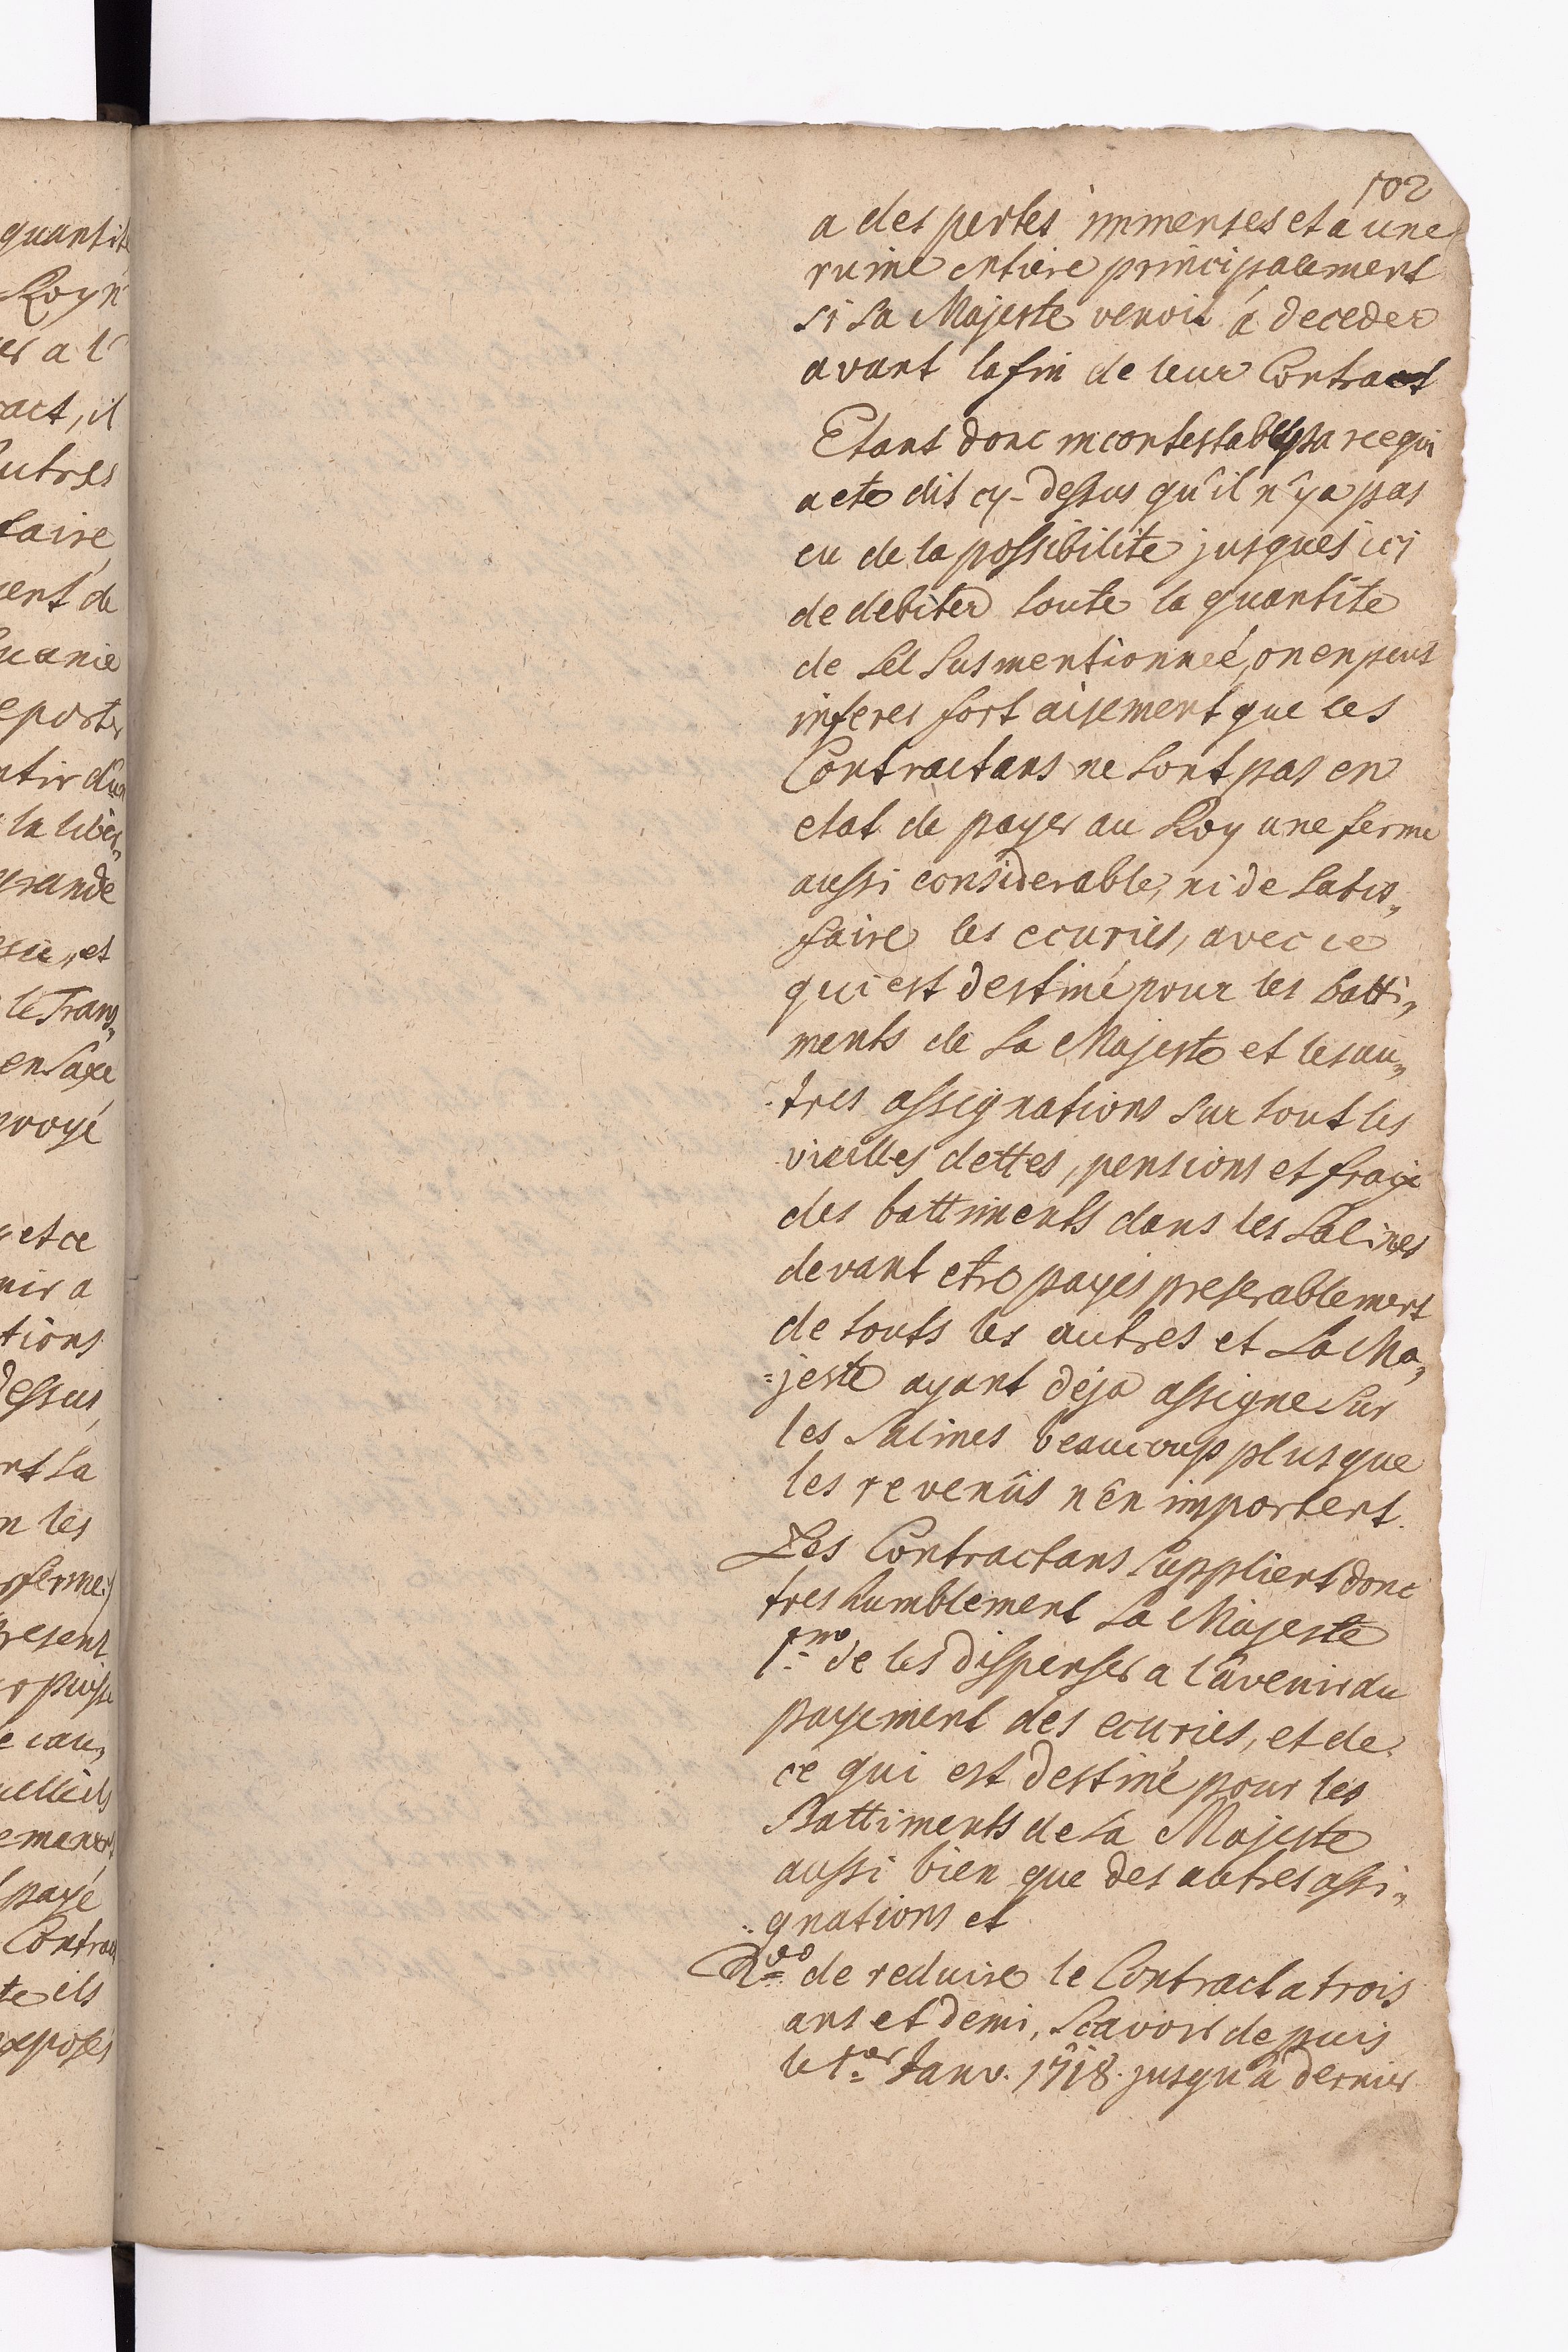 quantité
Roy n'
er a l'
ract, il
autres
faire
ent de
uanie
eporter
ntir d'un
la liber„
grande
sie, et
le Trans„
en Saxe
nvoyé
et ce
nir a
tions
dessus,
nt Sa
n les
ferme)
present
puisse
e cau„
uelle ils
emanert
payé
Contract
te ils
exposés
102
a des pertes immenses et a une
ruine entiere principalement
si Sa Majesté venoit á deceder
avant la fin de leur Contract
Etant donc incontestable par ce qui
a eté dit cy-dessus qu'il n'y a pas
eu de la possibilité jusques ici
de debiter toute la quantité
de Sel Susmentionneé, on en peut
inferer fort aisement que les
Contractans ne sont pas en
etat de payer au Roy une ferme
aussi considerable, ni de Satis„
faire les ecuries, avec ce
qui est destiné pour les batti„
ments de Sa Majesté et les au„
tres assignations sur tout les
vieilles dettes, pensions et fraix
des battiments dans les Salines
devant etre payés preferablement
de touts les autres et Sa Ma„
=jesté ayant deja assigné Sur
les Salines beaucoup plus que
les revenûs n'en importent.
Les Contractans Supplient donc
tres humblement Sa Majesté
1mo de les dispenser a l'avenir du
payement des ecuries, et de
ce qui est destiné pour les
Battiments de Sa Majesté
aussi bien que des autres assi„
gnations et
2do de reduire le Contract a trois
ans et demi, Scavoir depuis
le 1er Janv. 1718. jusqu'a dernier